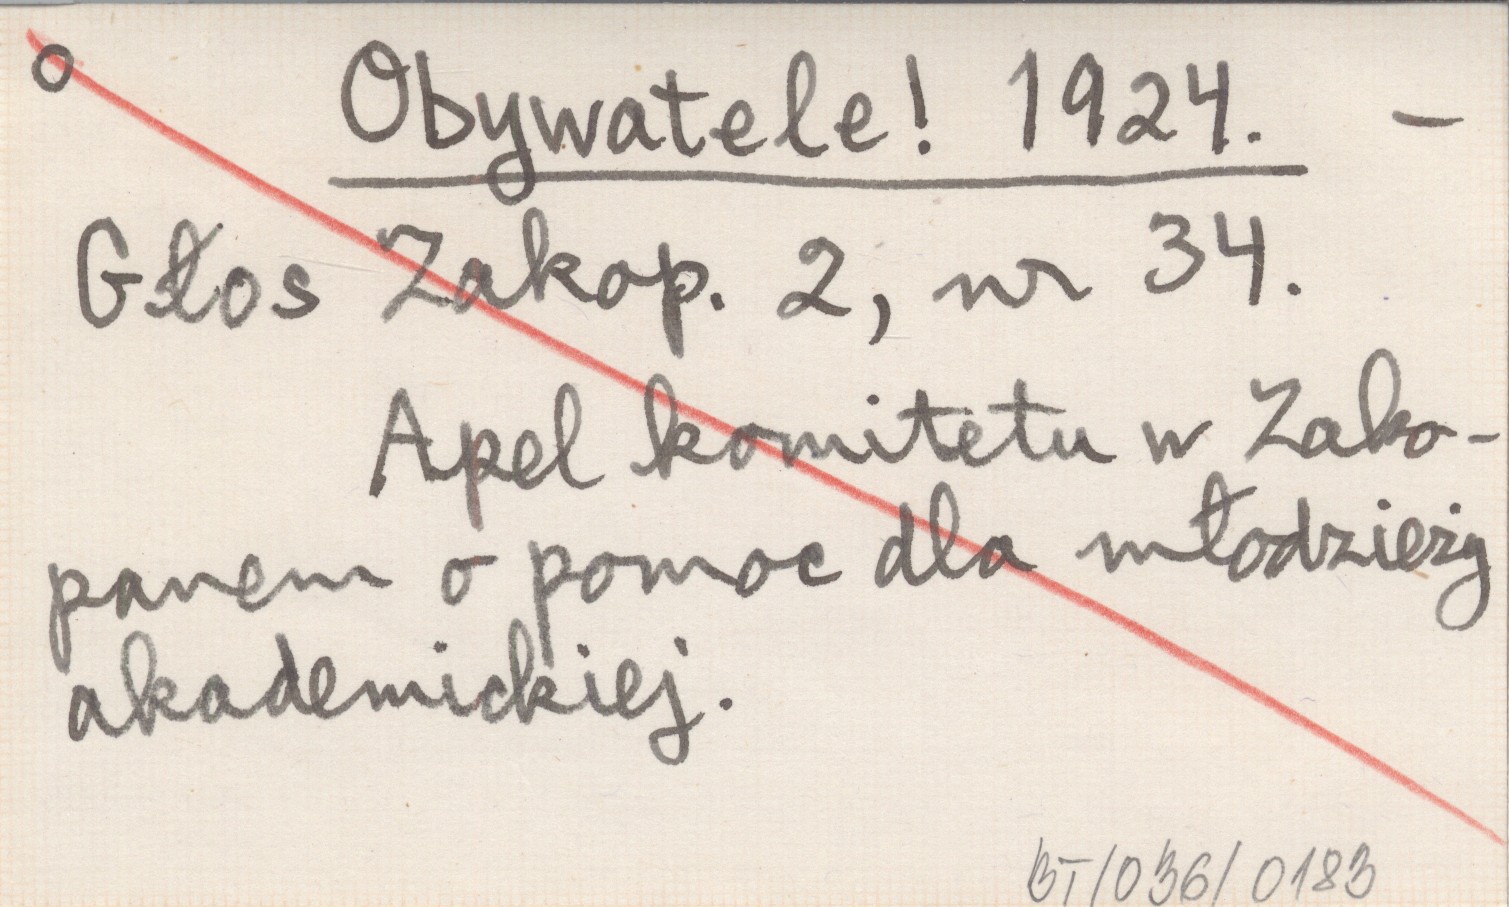 o Obywatele! 1924. –
Głos Zakop. 2, nr 34.
Apel komitetu w Zako-
panem o pomoc dla młodzieży
akademickiej.
BT/036/0183